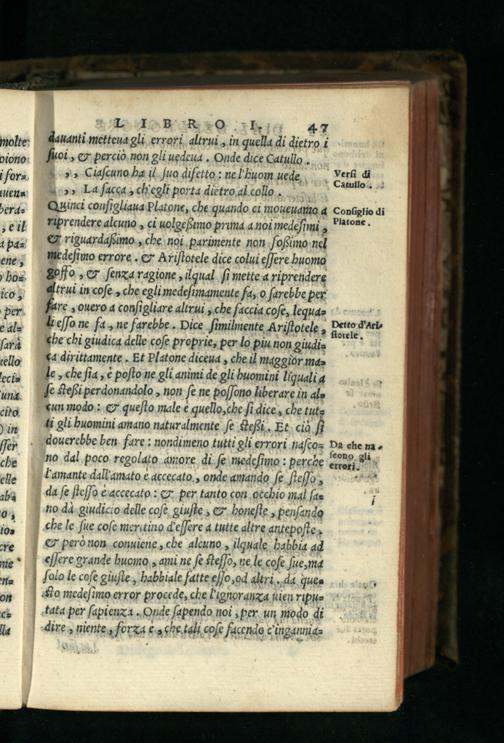 LIBRO I. 47
davanti metteva gli errori altrui, in quella di dietro i
suoi, & perciò non gli uedeua. Onde dice Catullo.
,, Ciascuno ha il suo difetto: ne l'huom uede
,, La sacca, ch'egli porta dietro al collo.
Versi di
Catullo.
Quinci consigliaua Platone, che quando ci moueuamo a
riprendere alcuno, ci uolgeßimo prima a noi medesimi,
& riguardaßimo, che noi parimente non foßimo nel
medesimo errore. & Aristotele dice colui essere huomo
goffo, & senza ragione, ilqual si mette a riprendere
altrui in cose, che egli medesimamente fa, o sarebbe per
fare, ouero a consigliare altrui, che faccia cose, lequa=
li esso ne fa, ne farebbe. Dice similmente Aristotele,
che chi giudica delle cose proprie, per lo piu non giudi=
ca dirittamente. Et Platone diceua, che il maggior ma=
le, che sia, è posto ne gli animi de gli huomini liquali a
se steßi perdonandolo, non se ne possono liberare in al=
cun modo: & questo male e quello, che si dice, che tut=
ti gli huomini amano naturalmente se steßi. Et ciò si
douerebbe ben fare: nondimeno tutti gli errori nasco=
no dal poco regolato amore di se medesimo: perche
l'amante dall'amato e accecato, onde amando se stesso,
da se stesso e accecato: & per tanto con occhio mal sa=
no dà giudicio delle cose giuste, & honeste, pensando
che le sue cose meritino d'essere a tutte altre anteposte.
& però non conuiene, che alcuno, ilquale habbia ad
essere grande huomo, ami ne se stesso, ne le cose sue, ma
solo le cose giuste, habbiale fatte esso, od altri. da que=
sto medesimo error procede, che l'ignoranza uien ripu=
tata per sapienza. Onde sapendo noi, per un modo di
dire, niente, forza e, che tali cose facendo c'ingannia=
Consiglio di
Platone.
Detto d'Ari-
stotele.
Da che na-
scono gli
errori.
i